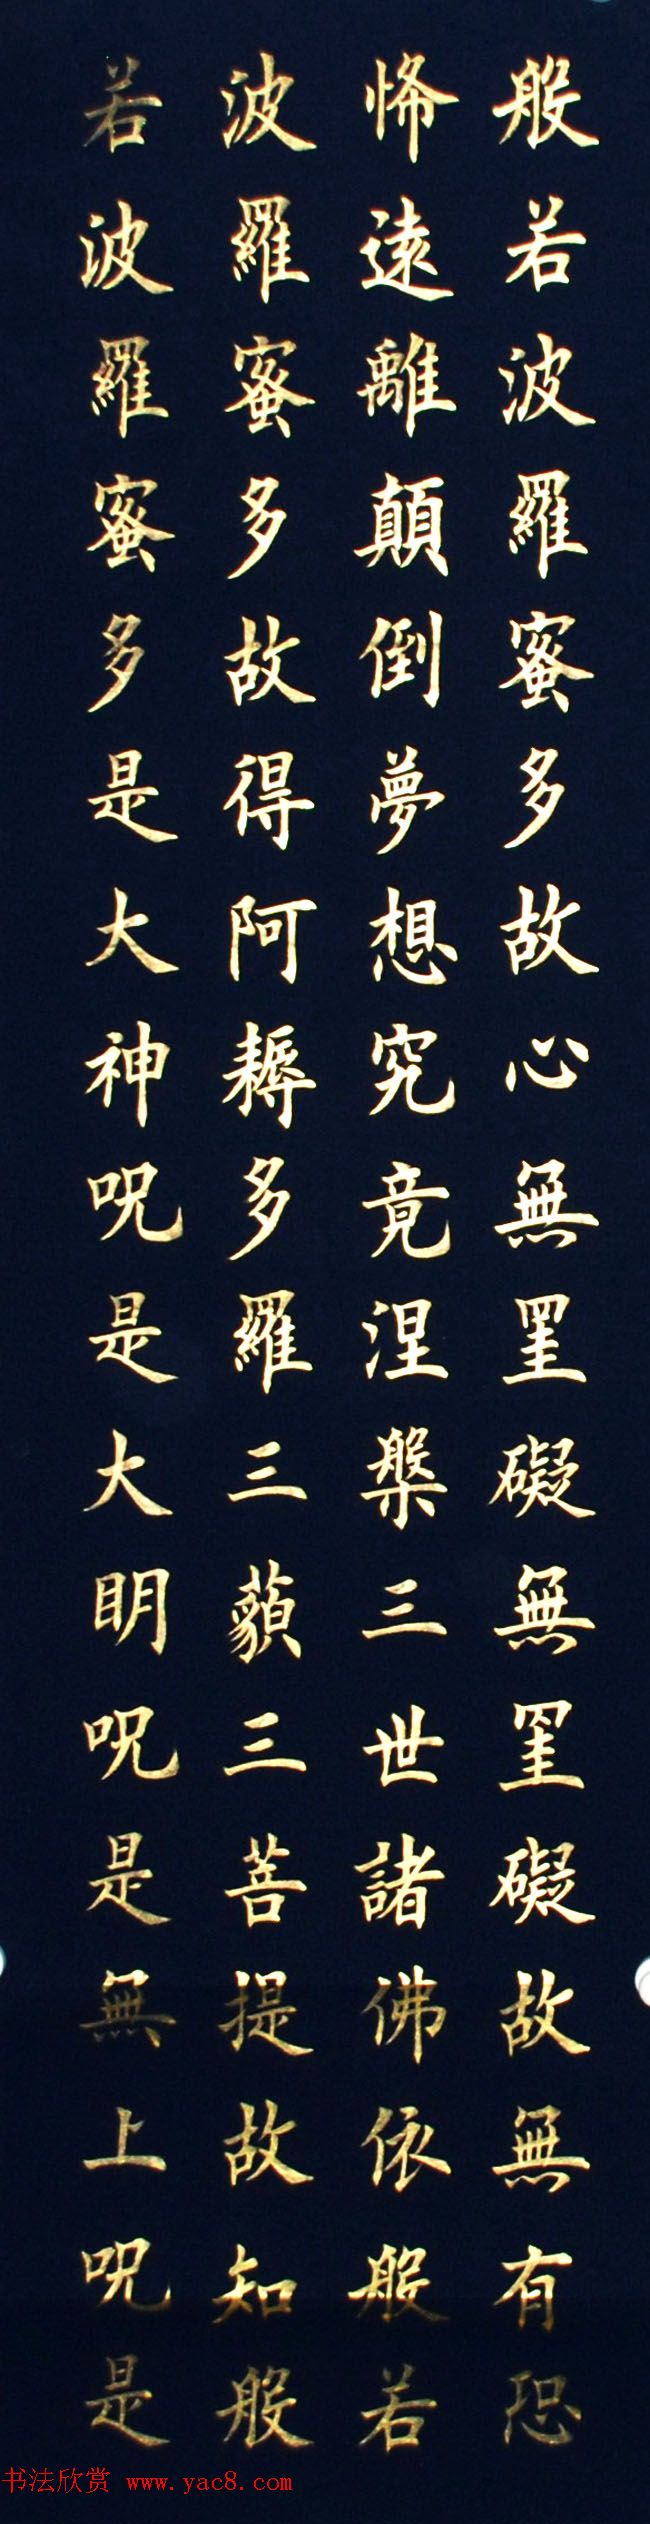 般若波羅蜜多故心無罣礙無罣礙故無有恐
怖遠離顛倒夢想究竟涅槃三世諸佛依般若
波羅蜜多故得阿耨多羅三藐三菩提故知般
若波羅蜜多是大神呪是大明呪是無上呪是
书法欣赏 www.yac8.com